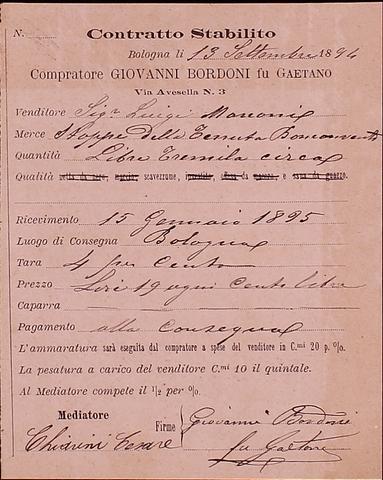 N. Contratto Stabilito
Bologna li 13 Settembre 1894
Compratore GIOVANNI BORDONI fu GAETANO
Via Avesella N. 3
Venditore Sigr Luigi Marconi
Merce Stoppe della Tenuta Bonconvento
Quantità Libre Tremila circa
Qualità netta da scarverrume, e cana da guazzo.
Ricevimento 15 Gennaio 1895
Luogo di Consegna Bologna
Tara 4 per Cento
Prezzo Lire 19 ogni Cento libre
Caparra
Pagamento alla Consegna
L'ammaratura sarà eseguita dal compratore a spese del venditore in C.mi 20 p. %.
La pesatura a carico del venditore C.mi 10 il quintale.
Al Mediatore compete il 1/2 per %.
Mediatore
Firme Giovanni Bordoni
Chiarini Cesare fu Gaetano